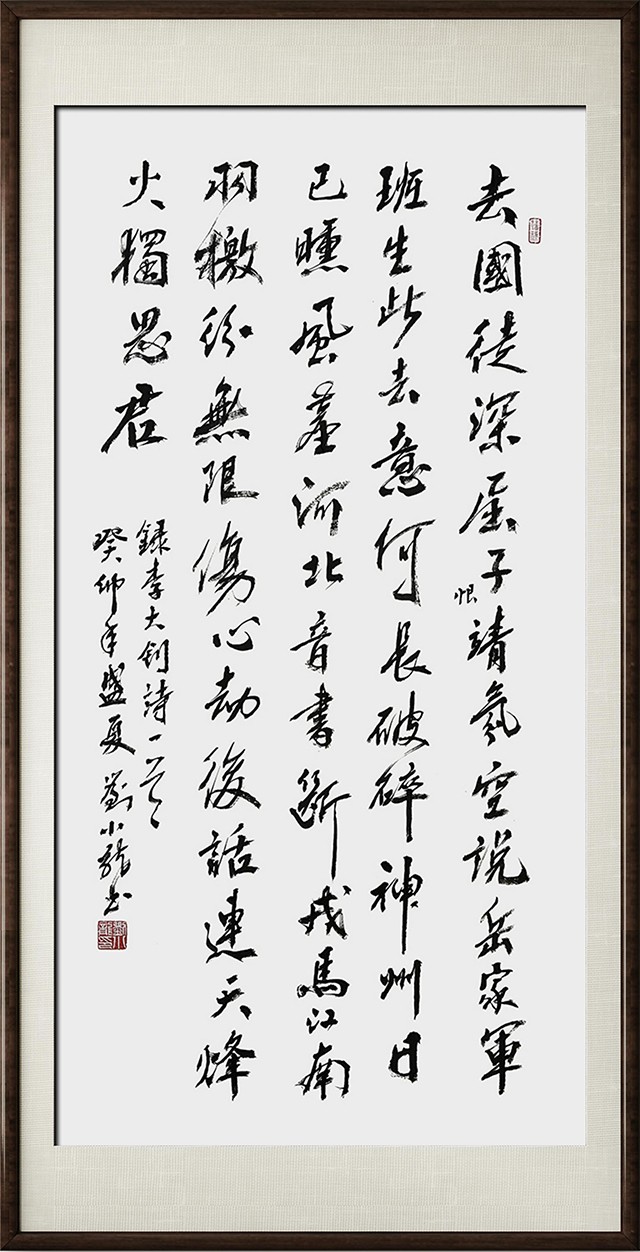 去國徒深屈子恨靖氛空説岳家軍
班生此去意何長破碎神州日
已曛風塵河北音書斷戎馬江南
羽檄紛無限傷心劫後話連天烽
火獨思君
録李大釗詩一首
癸卯年盛夏 劉小龍書